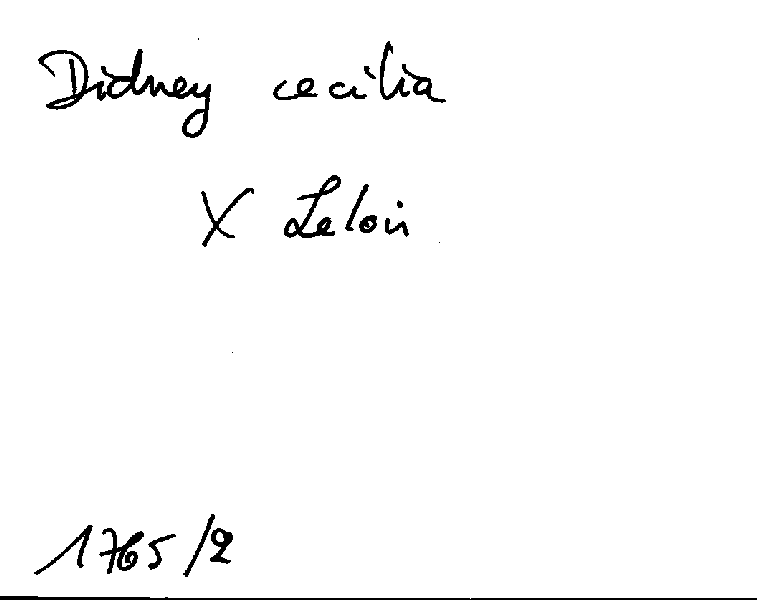 Didney cecilia
X Leloir
1765/2